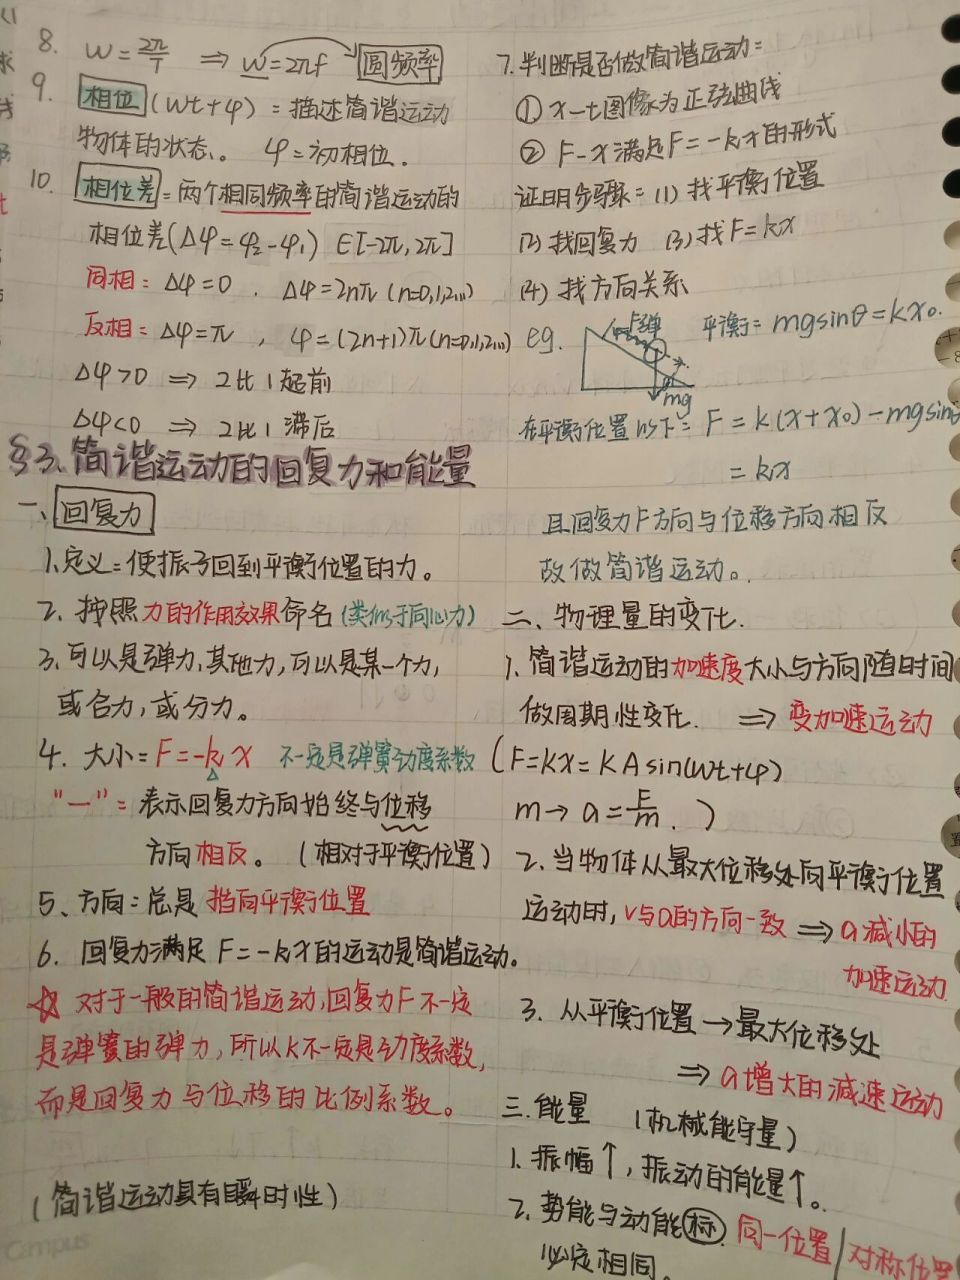 8. ω=2π/T ⇒ ω=2πf 圆频率
9. 相位(ωt+φ)=描述简谐运动
物体的状态。 φ=初相位.
10. 相位差=两个相同频率的简谐运动的
相位差(Δφ=φ₂-φ₁) ∈[-2π,2π]
同相: Δφ=0 . Δφ=2nπ (n=0,1,2,…)
反相: Δφ=π , φ=(2n+1)π(n=0,1,2…)
Δφ>0 ⇒ 2比1超前
Δφ<0 ⇒ 2比1滞后
§3、简谐运动的回复力和能量
一、回复力
1、定义=使振子回到平衡位置的力。
2. 按照力的作用效果命名(类似于向心力)
3、可以是弹力,其他力,可以是某一个力,
或合力,或分力。
4. 大小=F=-kx 不一定是弹簧劲度系数
"—"=表示回复力方向始终与位移
方向相反。(相对于平衡位置)
5、方向:总是指向平衡位置
6. 回复力满足F=-kx的运动是简谐运动。
☆ 对于一般的简谐运动,回复力F不一定
是弹簧的弹力,所以k不一定是劲度系数,
而是回复力与位移的比例系数。
(简谐运动具有瞬时性)
Campus
7.判断是否做简谐运动=
① x-t图像为正弦曲线
② F-x满足F=-kx的形式
证明步骤=(1)找平衡位置
(2)找回复力 (3)找F=kx
(4)找方向关系
eg. F弹 平衡=mgsinθ=kx₀.
mg
在平衡位置以下= F=k(x+x₀)-mgsinθ
=kx
且回复力F方向与位移方向相反
故做简谐运动。
二、物理量的变化.
1. 简谐运动的加速度大小与方向随时间
做周期性变化. ⇒ 变加速运动
(F=kx=kAsin(ωt+φ)
m→a=F/m.)
2. 当物体从最大位移处向平衡位置
运动时,v与a的方向一致⇒a减小的
加速运动.
3. 从平衡位置→最大位移处
⇒ a增大的减速运动
三.能量 (机械能守量)
1.振幅↑,振动的能量↑。
2.势能与动能(标)同一位置/对称位置
必定相同。